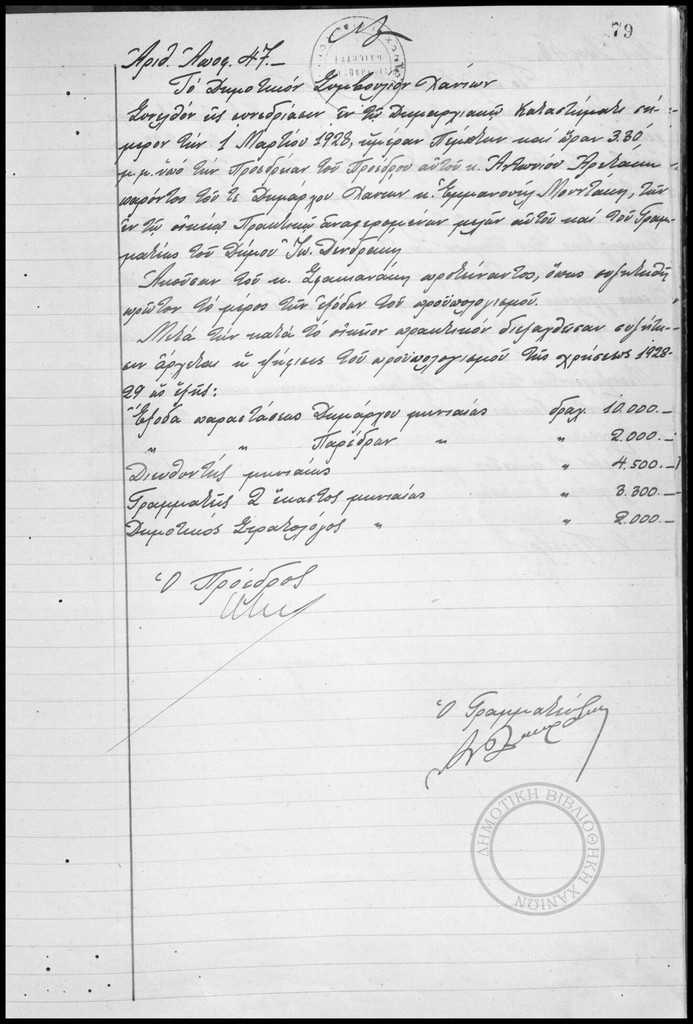 79
Ἀριθ. Ἀποφ. 47.—
Τὸ Δημοτικὸν Συμβούλιον Χανίων
Συνελθὸν εἰς συνεδρίασιν ἐν τῷ Δημαρχιακῷ Καταστήματι σή-
μερον τὴν 1 Μαρτίου 1928, ἡμέραν Πέμπτην καὶ ὥραν 3.30
μ.μ. ὑπὸ τὴν Προεδρείαν τοῦ Προέδρου αὐτοῦ κ. Ἀντωνίου
παρόντος τοῦ τε Δημάρχου Χανίων κ. Ἐμμανουὴλ Μουντάκη, τῶν
ἐν τῷ οἰκείῳ Πρακτικῷ ἀναφερομένων μελῶν αὐτοῦ καὶ τοῦ Γραμ-
ματέως τοῦ Δήμου Ἰω. Δενδράκη
Ἀκοῦσαν τοῦ κ. Σφακιανάκη προτείναντος, ὅπως συζητηθῇ
πρῶτον τὸ μέρος τῶν ἐξόδων τοῦ προϋπολογισμοῦ.
Μετὰ τὴν κατὰ τὸ οἰκεῖον πρακτικὸν διεξαχθεῖσαν συζήτη-
σιν ἄρχεται ἡ ψήφισις τοῦ προϋπολογισμοῦ τῆς χρήσεως 1928-
29 ὡς ἑξῆς:
Ἔξοδα παραστάσεως Δημάρχου μηνιαίως δραχ. 10.000.—
" " Παρέδρων " " 2.000.—
Διευθυντὴς μηνιαίως " 4.500.—
Γραμματεῖς 2 ἕκαστος μηνιαίως " 3.300.—
Δημοτικὸς Στρατολόγος " " 2.000.—
Ὁ Πρόεδρος
Ὁ Γραμματεύς
ΔΗΜΟΤΙΚΗ ΒΙΒΛΙΟΘΗΚΗ ΧΑΝΙΩΝ